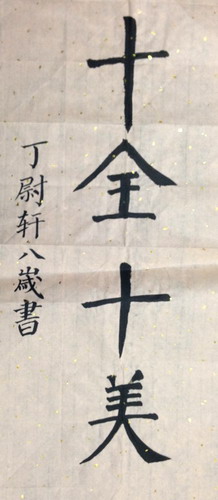 十全十美
丁尉轩八歳書